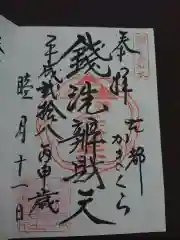 奉拝
古都
かまくら
銭洗辨財天
平成貳拾八丙申歳
睦月十一日